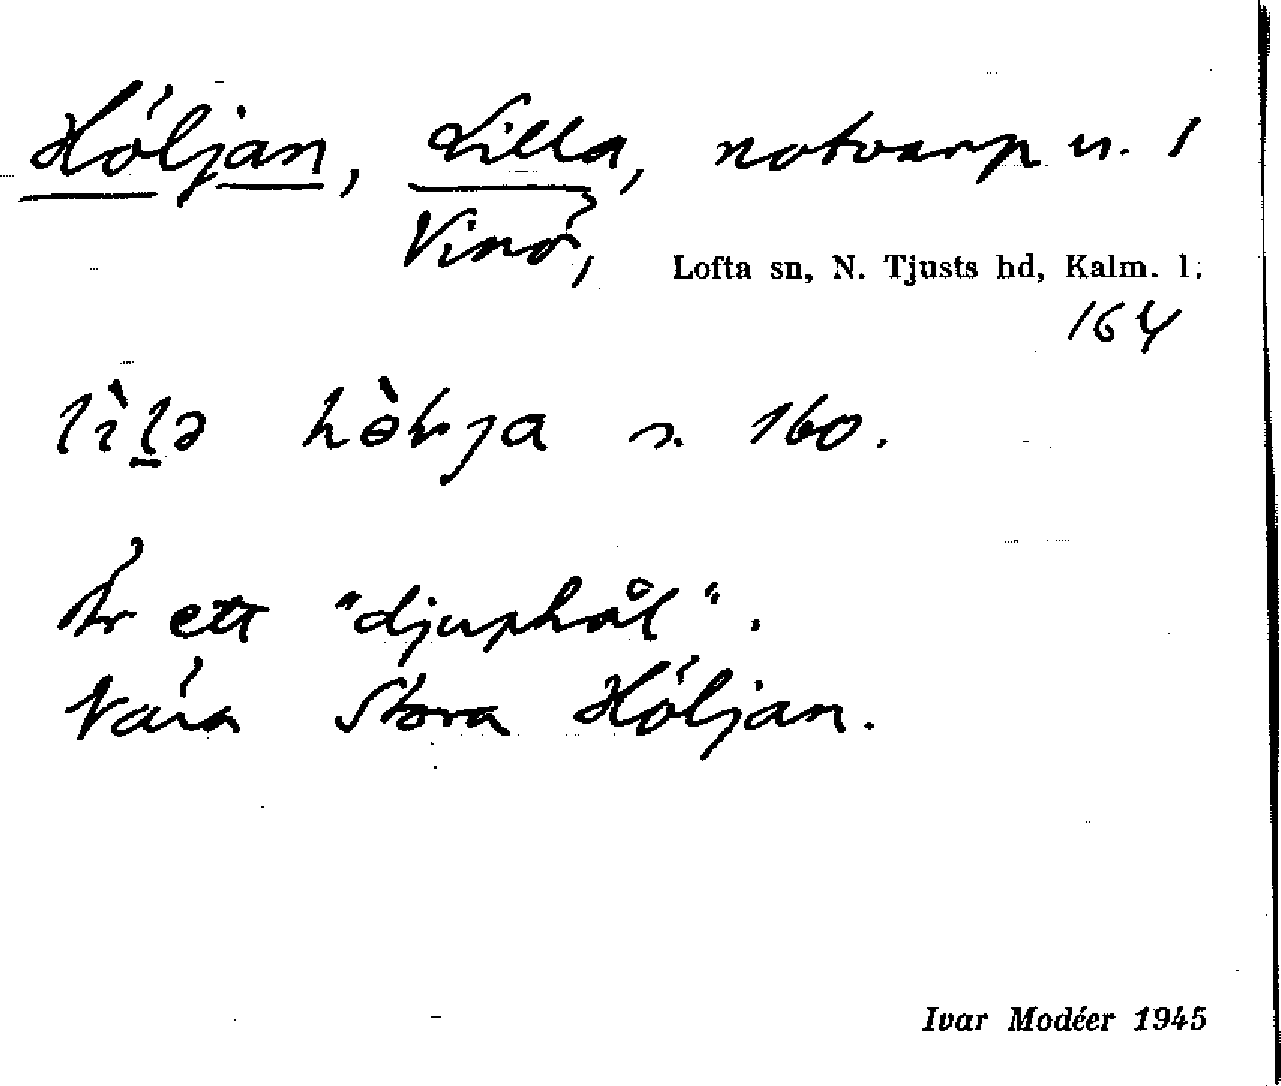 Höljan, Lilla, notvarp u. 1
Vinö,
Lofta sn, N. Tjusts hd, Kalm. l:
164
s. 160.
Är ett "djuphål".
Nära Stora Höljan.
Ivar Modéer 1945